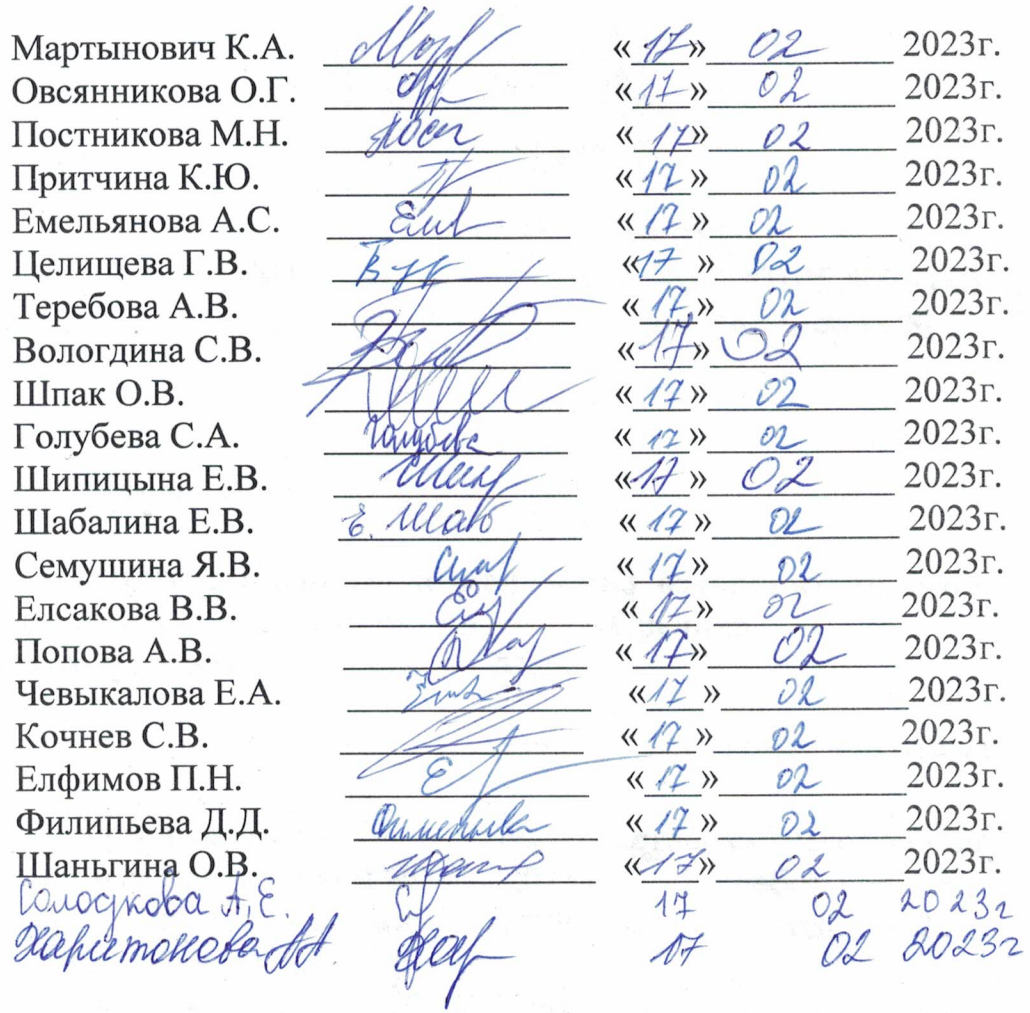 Мартынович К.А. «17» 02 2023г.
Овсянникова О.Г. «17» 02 2023г.
Постникова М.Н. «17» 02 2023г.
Притчина К.Ю. «17» 02 2023г.
Емельянова А.С. «17» 02 2023г.
Целищева Г.В. «17» 02 2023г.
Теребова А.В. «17» 02 2023г.
Вологдина С.В. «17» 02 2023г.
Шпак О.В. «17» 02 2023г.
Голубева С.А. Голубева «17» 02 2023г.
Шипицына Е.В. «17» 02 2023г.
Шабалина Е.В. Е. Шаб «17» 02 2023г.
Семушина Я.В. «17» 02 2023г.
Елсакова В.В. «17» 02 2023г.
Попова А.В. «17» 02 2023г.
Чевыкалова Е.А. «17» 02 2023г.
Кочнев С.В. «17» 02 2023г.
Елфимов П.Н. «17» 02 2023г.
Филипьева Д.Д. Филипьева «17» 02 2023г.
Шаньгина О.В. «17» 02 2023г.
Солодкова А.Е. 17 02 2023г
Харитонова А.А. 17 02 2023г